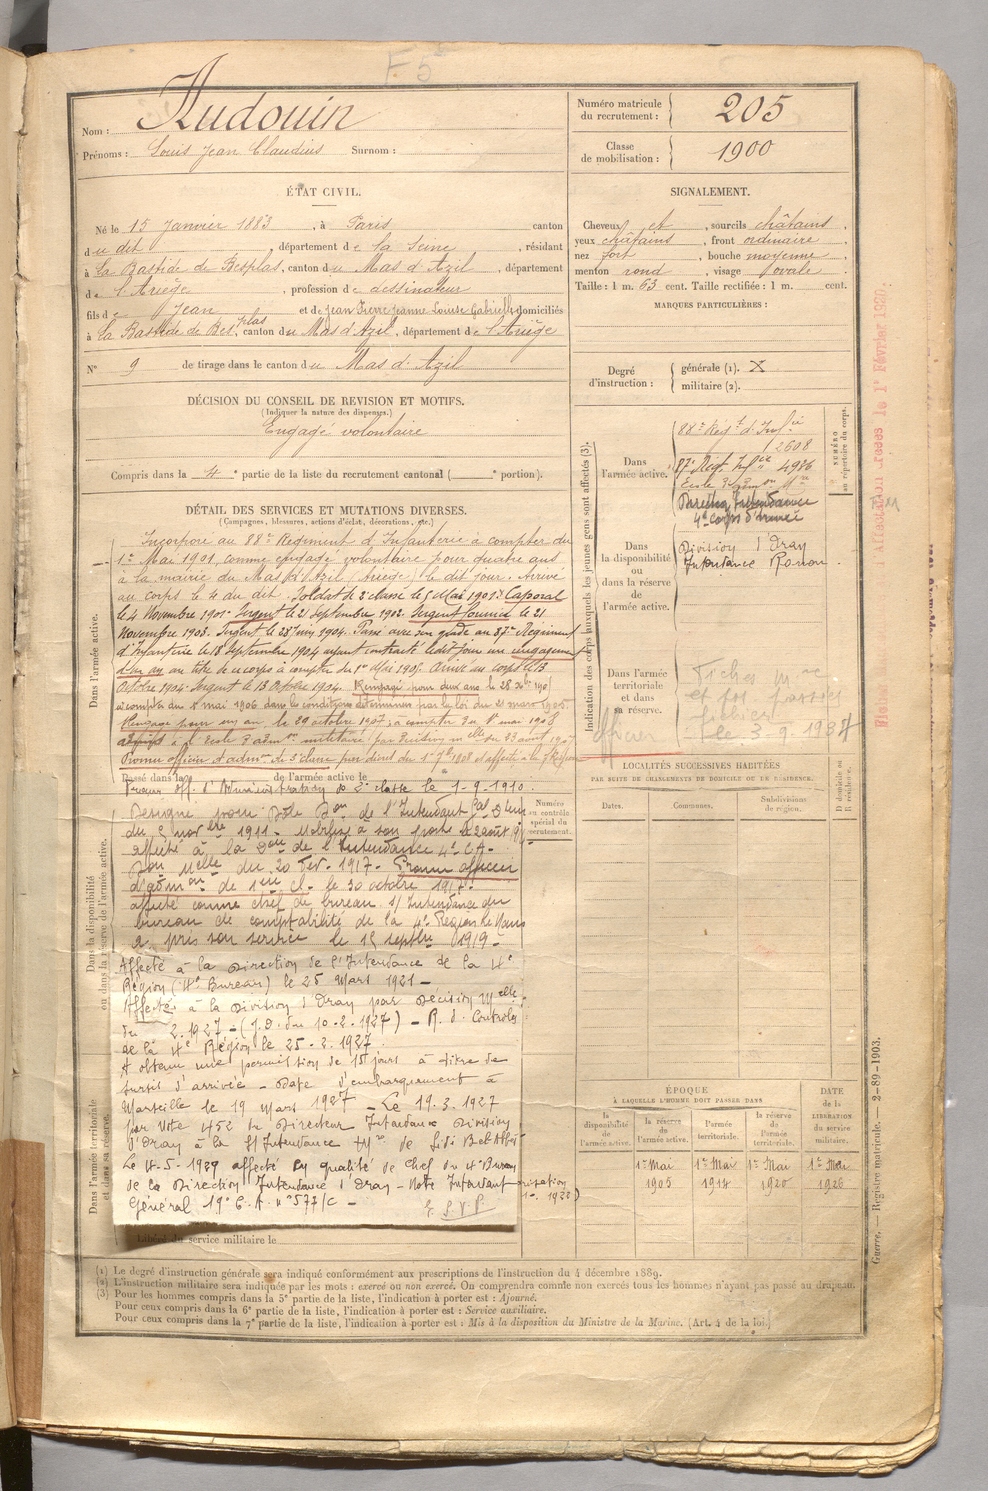 F5
Nom : Audouin
Prénoms : Louis Jean Claudius Surnom :
Numéro matricule du recrutement : 205
Classe de mobilisation : 1900
ÉTAT CIVIL.
Né le 15 Janvier 1883, à Paris canton
du dit, département de la Seine, résidant
à La Bastide de Besplas, canton du Mas d'Azil, département
de l'Ariège, profession de dessinateur
fils de Jean et de Jean Pierre Jeanne Louise Gabrielle domiciliés
à La Bastide de Besplas, canton du Mas d'Azil, département de l'Ariège
N° 9 de tirage dans le canton du Mas d'Azil
SIGNALEMENT.
Cheveux et, sourcils châtains,
yeux châtains, front ordinaire,
nez fort, bouche moyenne,
menton rond, visage ovale.
Taille : 1 m. 63 cent. Taille rectifiée : 1 m. cent.
MARQUES PARTICULIÈRES :
Degré d'instruction :
générale (1). X
militaire (2).
DÉCISION DU CONSEIL DE REVISION ET MOTIFS.
(Indiquer la nature des dispenses.)
Engagé volontaire
Compris dans la 4e partie de la liste du recrutement cantonal ( e portion).
DÉTAIL DES SERVICES ET MUTATIONS DIVERSES.
(Campagnes, blessures, actions d'éclat, décorations, etc.)
Dans l'armée active.
Incorporé au 88e Régiment d'Infanterie à compter du
1er Mai 1901, comme engagé volontaire pour quatre ans
à la mairie du Mas d'Azil (Ariège) le dit jour. Arrivé
au corps le 4 du dit. Soldat de 2e classe le 5 Mai 1901. Caporal
le 4 Novembre 1901. Sergent le 21 Septembre 1902. Sergent fourrier le 21
Novembre 1903. Sergent le 28 1904. Passé avec son grade au 87e Régiment
d'Infanterie le 18 Septembre 1904 ayant contracté le dit jour un engagement
d'un an au titre de ce corps à compter du 1er Mai 1905. Arrivé au corps le 13
Octobre 1904. Sergent le 13 Octobre 1904. Rengagé pour deux ans le 28
à compter du 1er mai 1906 dans les conditions déterminées par la loi du 21 mars 1905.
Rengagé pour un an, le 29 octobre 1907, à compter du 1er mai 1908
à l'école d'admon militaire par décision mlle du 23 août 190
Promu officier d'admon de 3e classe par décret du 1908 et affecté à la 7e Région
Passé dans la de l'armée active le
Promu Off. d'Administration de 2e classe le 1-9-1910.
Dans la disponibilité ou dans la réserve de l'armée active.
Désigné pour de l'Intendant
du 5 novbre 1911. à son poste le 2 août
affecté à la Don de l'Intendance 4e C.A.
Don Melle du 20 Fev. 1917. Promu officier
d'admon de 1ère cl. le 30 octobre 1917.
affecté comme chef de bureau s/ Intendance du
bureau de comptabilité de la 4e Région Le Mans
a pris son service le 15 septbre 1919 -
Affecté à la Direction de l'Intendance de la 4e
Région (4e Bureau) le 25 Mars 1921 -
Affecté à la Division d'Oran par Décision Melle
du 2.1927 - (J.O. du 10-2-1927) - R. d. Contrôles
de la 4e Région le 25-2-1927.
A obtenu une permission de 15 jours à titre de
sursis d'arrivée - Date d'embarquement à
Marseille le 19 Mars 1927 - Le 19.3.1927
par Note 452 du Directeur Intendance Division
d'Oran à la S/Intendance de Sidi Bel Abbès
Dans l'armée territoriale et dans sa réserve.
Le 4-5-1929 affecté en qualité de Chef du 4e Bureau
de la Direction Intendance d'Oran - Note Intendant
Général 19e C.A. n° 577/C -
T.S.V.P.
Libéré du service militaire le
Indication des corps auxquels les jeunes gens sont affectés (3).
NUMÉRO au répertoire du corps.
Dans l'armée active.
88e Régt d'Infie
2608
87e Régt Infie 4986
Direction Intendance
4e corps d'armée
Dans la disponibilité ou dans la réserve de l'armée active.
Division d'Oran
Intendance
Dans l'armée territoriale et dans sa réserve.
Fiches
le 3-9-1937
Officier
LOCALITÉS SUCCESSIVES HABITÉES
PAR SUITE DE CHANGEMENTS DE DOMICILE OU DE RÉSIDENCE.
Numéro au contrôle spécial du recrutement.
Dates.
Communes.
Subdivisions de région.
D domicile ou R résidence.
ÉPOQUE
À LAQUELLE L'HOMME DOIT PASSER DANS
la disponibilité de l'armée active.
la réserve de l'armée active.
l'armée territoriale.
la réserve de l'armée territoriale.
DATE de la LIBÉRATION du service militaire.
1er Mai 1905
1er Mai 1914
1er Mai 1920
1er Mai 1926
(1) Le degré d'instruction générale sera indiqué conformément aux prescriptions de l'instruction du 4 décembre 1889.
(2) L'instruction militaire sera indiquée par les mots : exercé ou non exercé. On comprendra comme non exercés tous les hommes n'ayant pas passé au drapeau.
(3) Pour les hommes compris dans la 5e partie de la liste, l'indication à porter est : Ajourné.
Pour ceux compris dans la 6e partie de la liste, l'indication à porter est : Service auxiliaire.
Pour ceux compris dans la 7e partie de la liste, l'indication à porter est : Mis à la disposition du Ministre de la Marine. (Art. 4 de la loi.)
Guerre. — Registre matricule. — 2-89-1903.